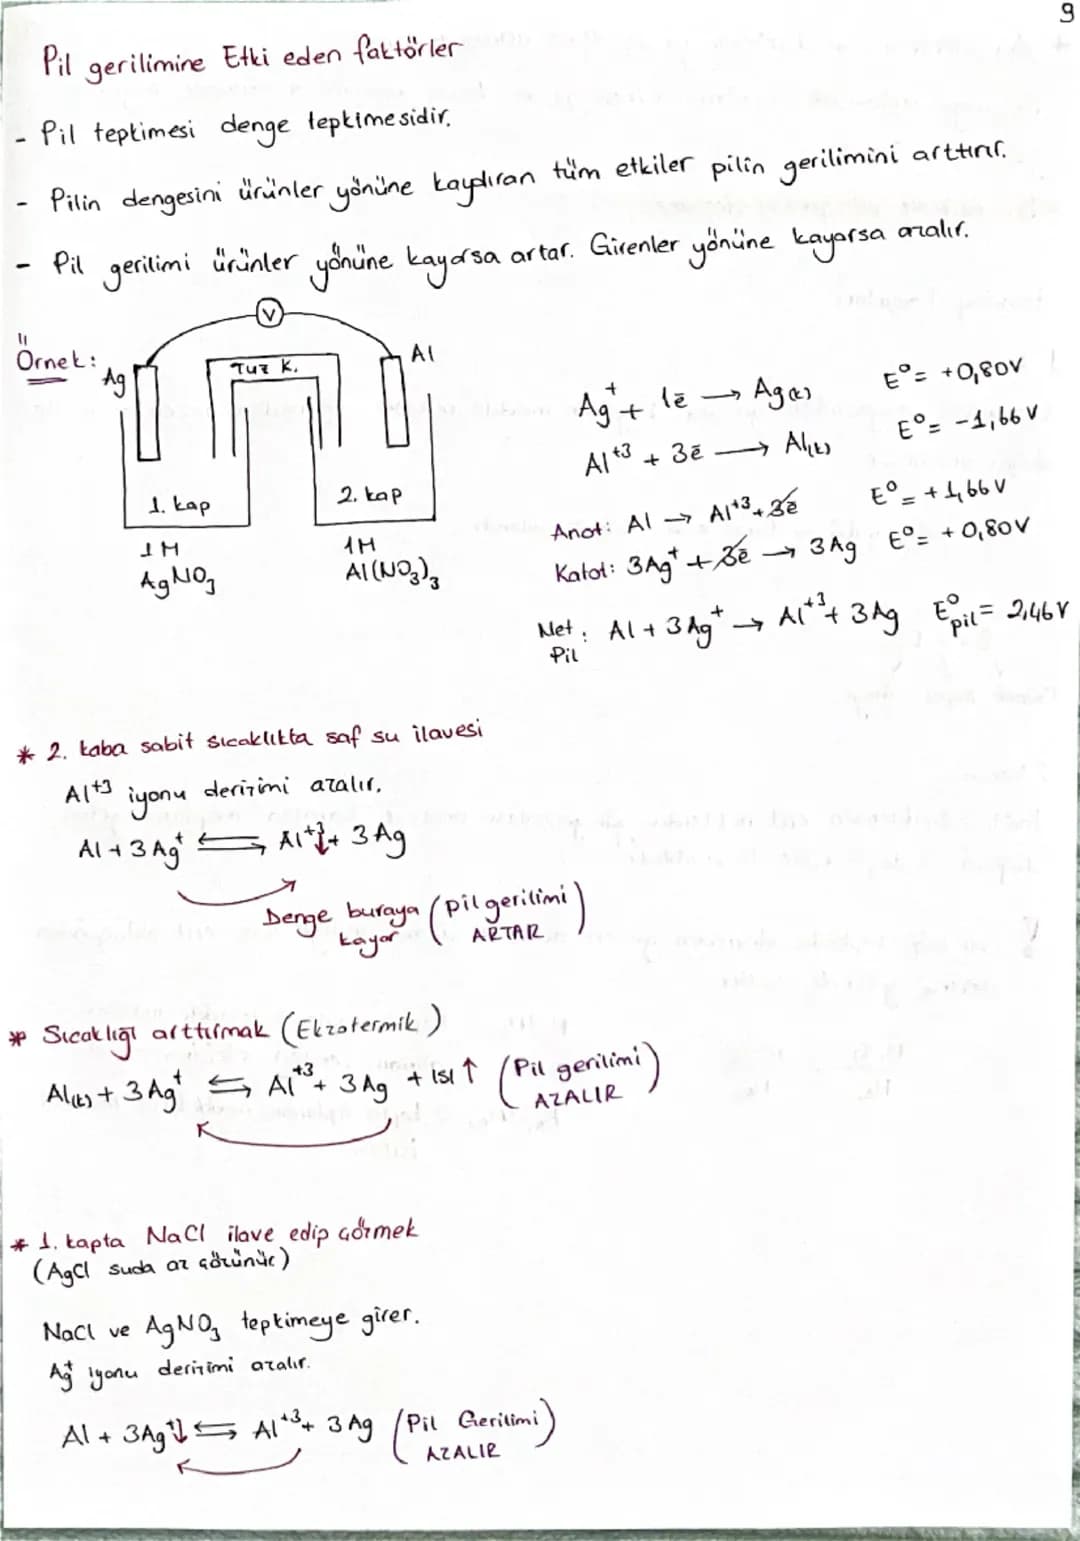 9
Pil gerilimine Etki eden faktörler
- Pil tepkimesi denge tepkimesidir.
- Pilin dengesini ürünler yönüne kaydıran tüm etkiler pilin gerilimini arttırır.
- Pil gerilimi ürünler yönüne kayarsa artar. Girenler yönüne kayarsa azalır.
Örnek:
V
Ag
Tuz K.
Al
1. kap
2. kap
1M
AgNO₃
1M
Al(NO₃)₃
Ag⁺ + 1ē → Ag(k) E° = +0,80V
Al⁺³ + 3ē → Al(k) E° = -1,66V
Anot: Al → Al⁺³ + 3ē E° = +1,66V
Katot: 3Ag⁺ + 3ē → 3Ag E° = +0,80V
Net Pil : Al + 3Ag⁺ → Al⁺³ + 3Ag E°pil = 2,46V
* 2. kaba sabit sıcaklıkta saf su ilavesi
Al⁺³ iyonu derizimi azalır.
Al + 3Ag⁺ ⇌ Al⁺³↓ + 3Ag
Denge buraya kayar (pil gerilimi ARTAR)
* Sıcaklığı arttırmak (Ekzotermik)
Al(k) + 3Ag⁺ ⇌ Al⁺³ + 3Ag + ısı ↑ (Pil gerilimi AZALIR)
* 1. kapta NaCl ilave edip çözmek
(AgCl suda az çözünür)
NaCl ve AgNO₃ tepkimeye girer.
Ag⁺ iyonu derizimi azalır.
Al + 3Ag⁺↓ ⇌ Al⁺³ + 3Ag (Pil Gerilimi AZALIR)